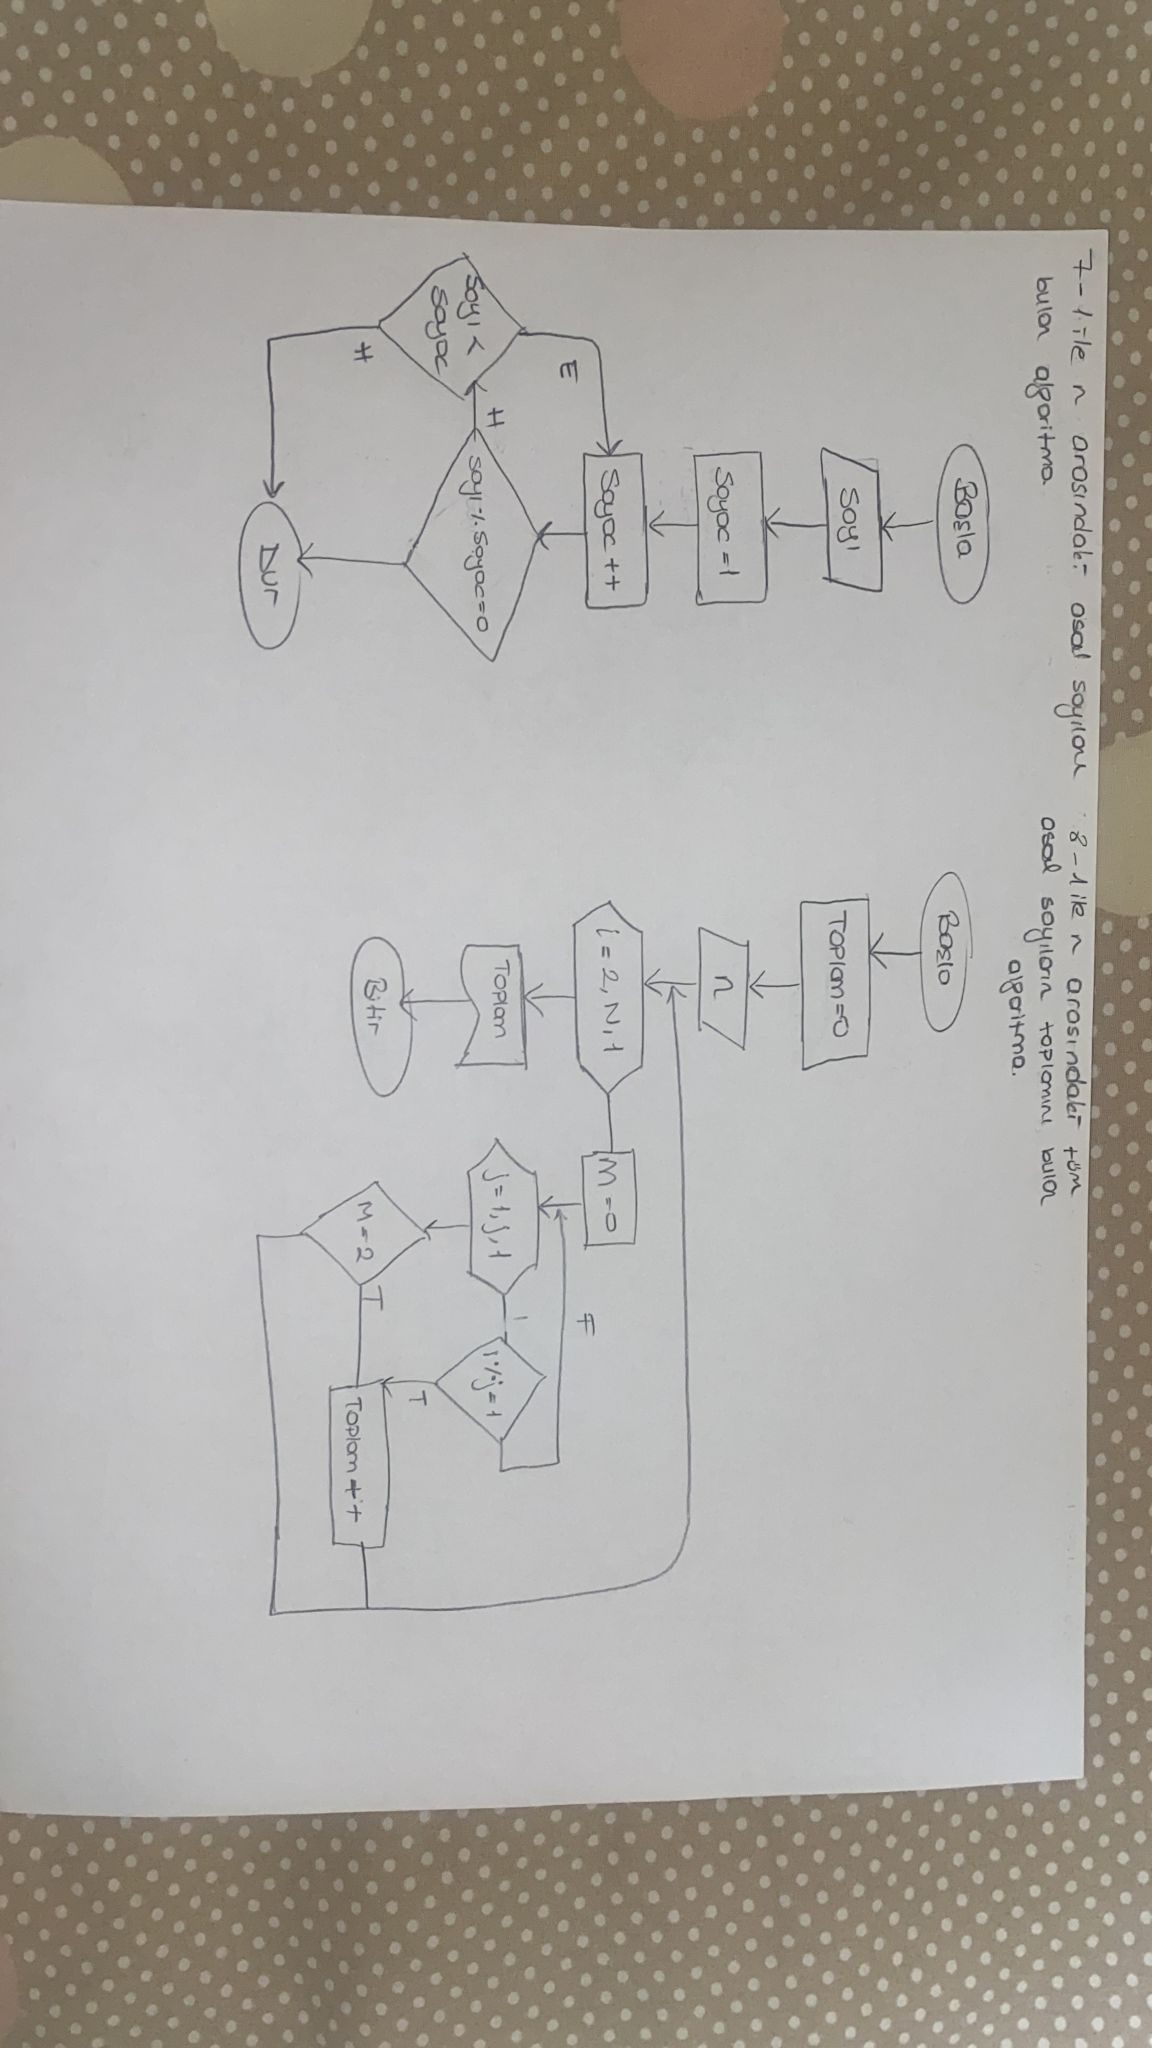 7-1 ile n arasındaki asal sayıları
bulan algoritma.
Başla
Sayı
Sayac=1
Sayac++
Sayı%Sayac=0
H
Sayı<
Sayac
E
H
Dur
8-1 ile n arasındaki tüm
asal sayıların toplamını bulan
algoritma.
Başla
Toplam=0
n
i=2,N,1
Toplam
Bitir
M=0
F
j=1,j,1
i%j=1
T
M=2
T
Toplam+i